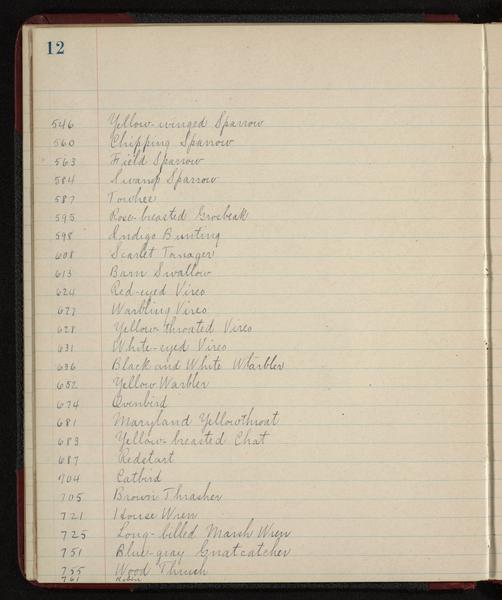 12
546 Yellow-winged Sparrow
560 Chipping Sparrow
563 Field Sparrow
584 Swamp Sparrow
587 Towhee
595 Rose-breasted Grosbeak
598 Indigo Bunting
608 Scarlet Tanager
613 Barn Swallow
624 Red-eyed Vireo
627 Warbling Vireo
628 Yellow-throated Vireo
631 White-eyed Vireo
636 Black and White Warbler
652 Yellow Warbler
674 Ovenbird
681 Maryland Yellowthroat
683 Yellow-breasted Chat
687 Redstart
704 Catbird
705 Brown Thrasher
721 House Wren
725 Long-billed Marsh Wren
751 Blue-gray Gnatcatcher
755 Wood Thrush
761 Robin